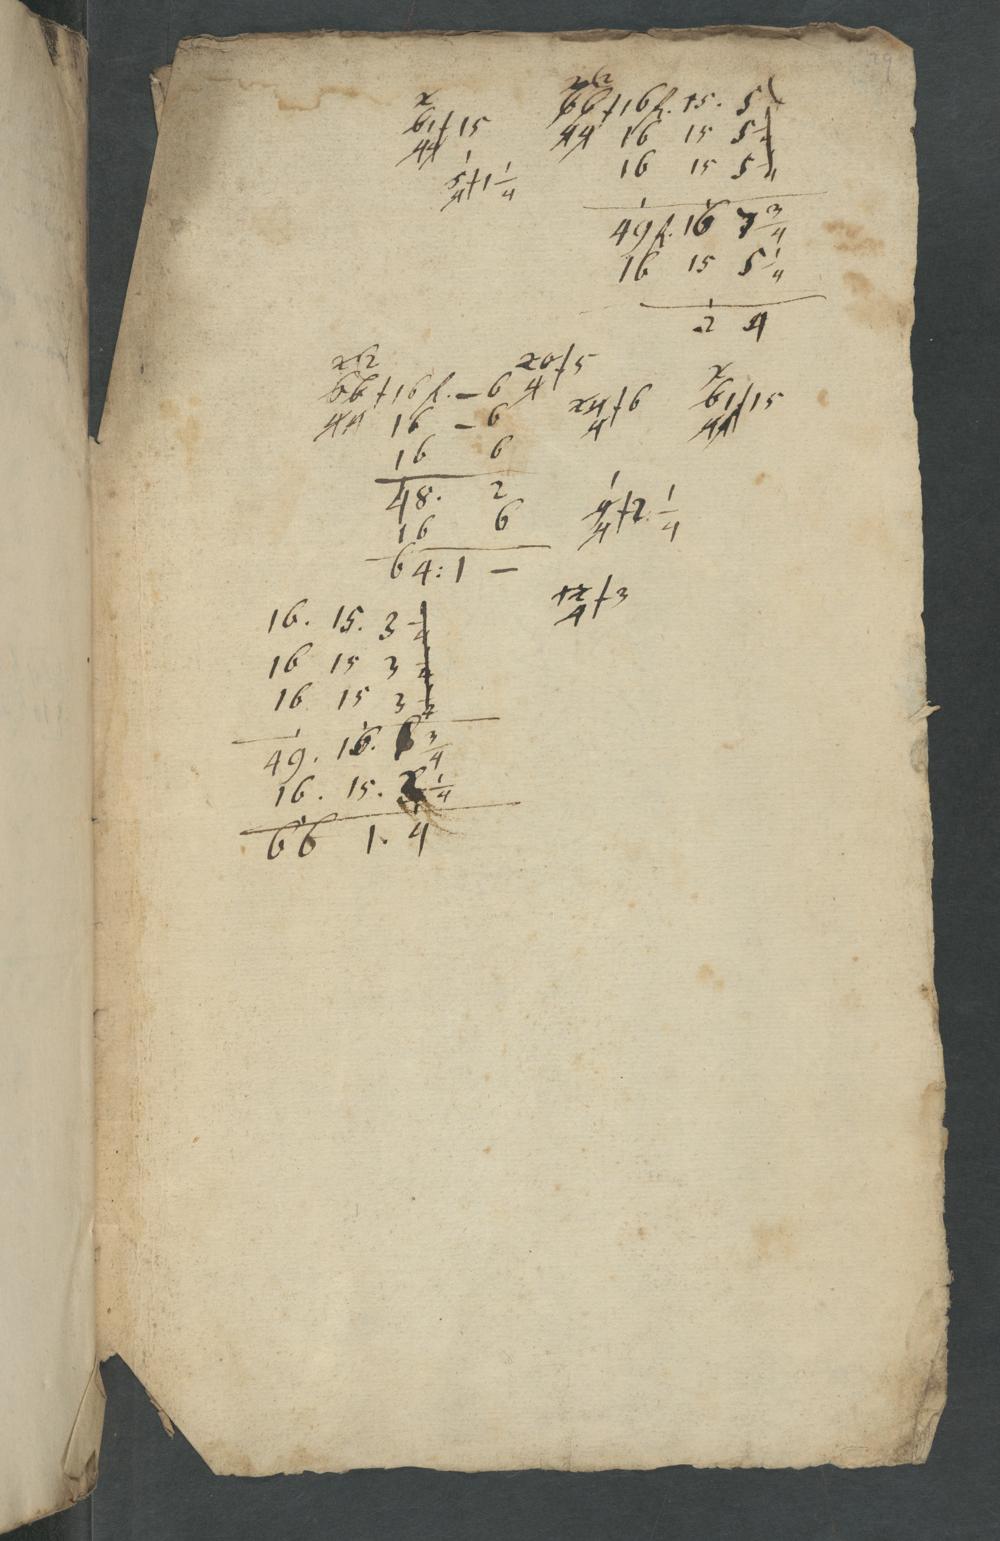 61 f 15
44
5 f 1 1/4
4
66 f 16 f. 15. 5
44 16 15 5
16 15 5
49 f. 16 7 3/4
16 15 5 1/4
2 4
66 f 16 f. – 6
44 16 – 6
16 6
48. 2
16 6
64 : 1 –
20 f 5
4
24 f 6
4
61 f 15
44
9 f 2 1/4
4
12 f 3
4
16. 15. 3
16 15 3
16 15 3
49. 16. 3/4
16. 15. 1/4
66 1. 4